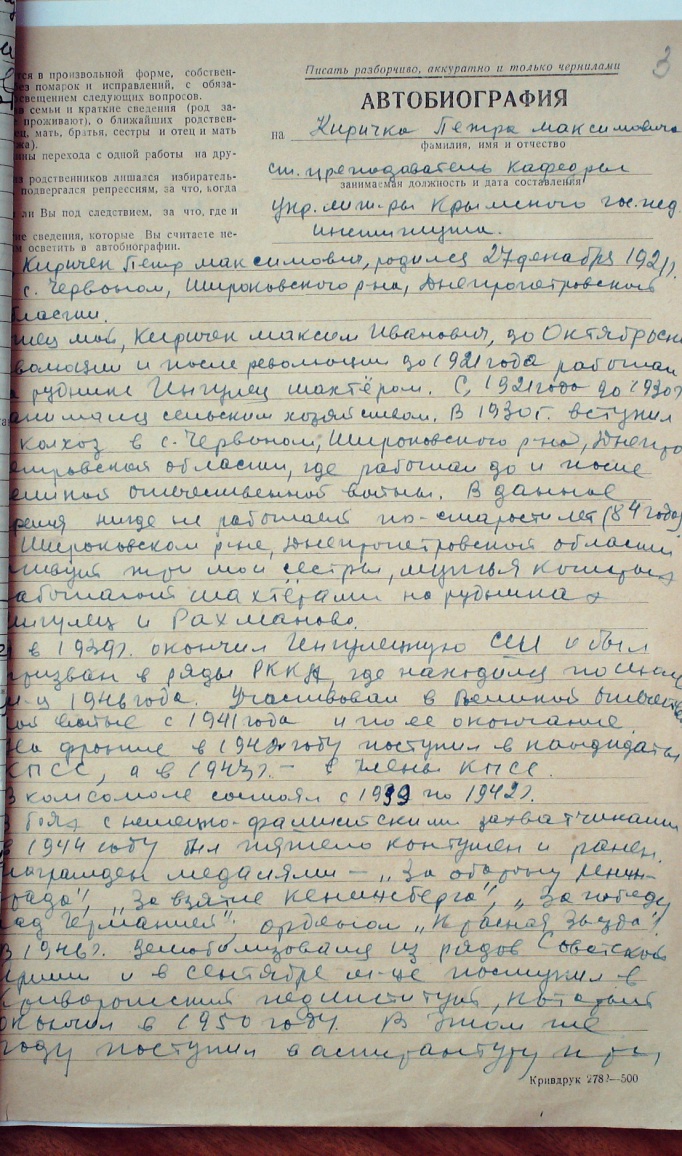 3
Писать разборчиво, аккуратно и только чернилами
тся в произвольной форме, собствен-
без помарок и исправлений, с обяза-
освещением следующих вопросов.
семьи и краткие сведения (род за-
проживают), о ближайших родствен-
ец, мать, братья, сестры и отец и мать
жа).
ины перехода с одной работы на дру-
родственников лишался избиратель-
подвергался репрессиям, за что, когда
ли Вы под следствием, за что, где и
ие сведения, которые Вы считаете не-
осветить в автобиографии.
АВТОБИОГРАФИЯ
на Киричка Петра Максимовича
фамилия, имя и отчество
ст. преподаватель кафедры
занимаемая должность и дата составления
укр. лит-ры Крымского гос. пед.
института.
Киричек Петр Максимович, родился 27 декабря 1921 г.
с. Червоном, Широковского р-на, Днепропетровской
бласти.
тец мой, Киричек Максим Иванович, до Октябрьск
волюции и после революции до 1921 года работал
руднике Ингулец шахтёром. С 1921 года до 1930
анимался сельским хозяйством. В 1930 г. вступил
колхоз в с. Червоном, Широковского р-на, Днепро
етровской области, где работал до и после
еликой отечественной войны. В данное
ремя нигде не работает по старости лет (84 года)
Широковском р-не, Днепропетровской области
живут три мои сестры, мужья которых
аботают шахтёрами на рудниках
нгулец и Рахманово.
в 1939 г. окончил Ингулецкую СШ и был
призван в ряды РККА, где находился по
м-ц 1946 года. Участвовал в Великой отечестве
ой войне с 1941 года и по ее окончание.
На фронте в 1942 году поступил в кандидаты
КПСС, а в 1943 г. – в члены КПСС.
В комсомоле состоял с 1939 по 1942 г.
В боях с немецко-фашистскими захватчиками
в 1944 году был тяжело контужен и ранен.
Награжден медалями – „За оборону Ленин-
града", „За взятие Кенигсберга", „За победу
над Германией", орденом „Красная Звезда".
В 1946 г. демобилизовался из рядов Советской
Армии и в сентябре м-це поступил в
Криворожский пединститут, который
окончил в 1950 году. В этом же
году поступил в аспирантуру при
Кривдрук 2782—500